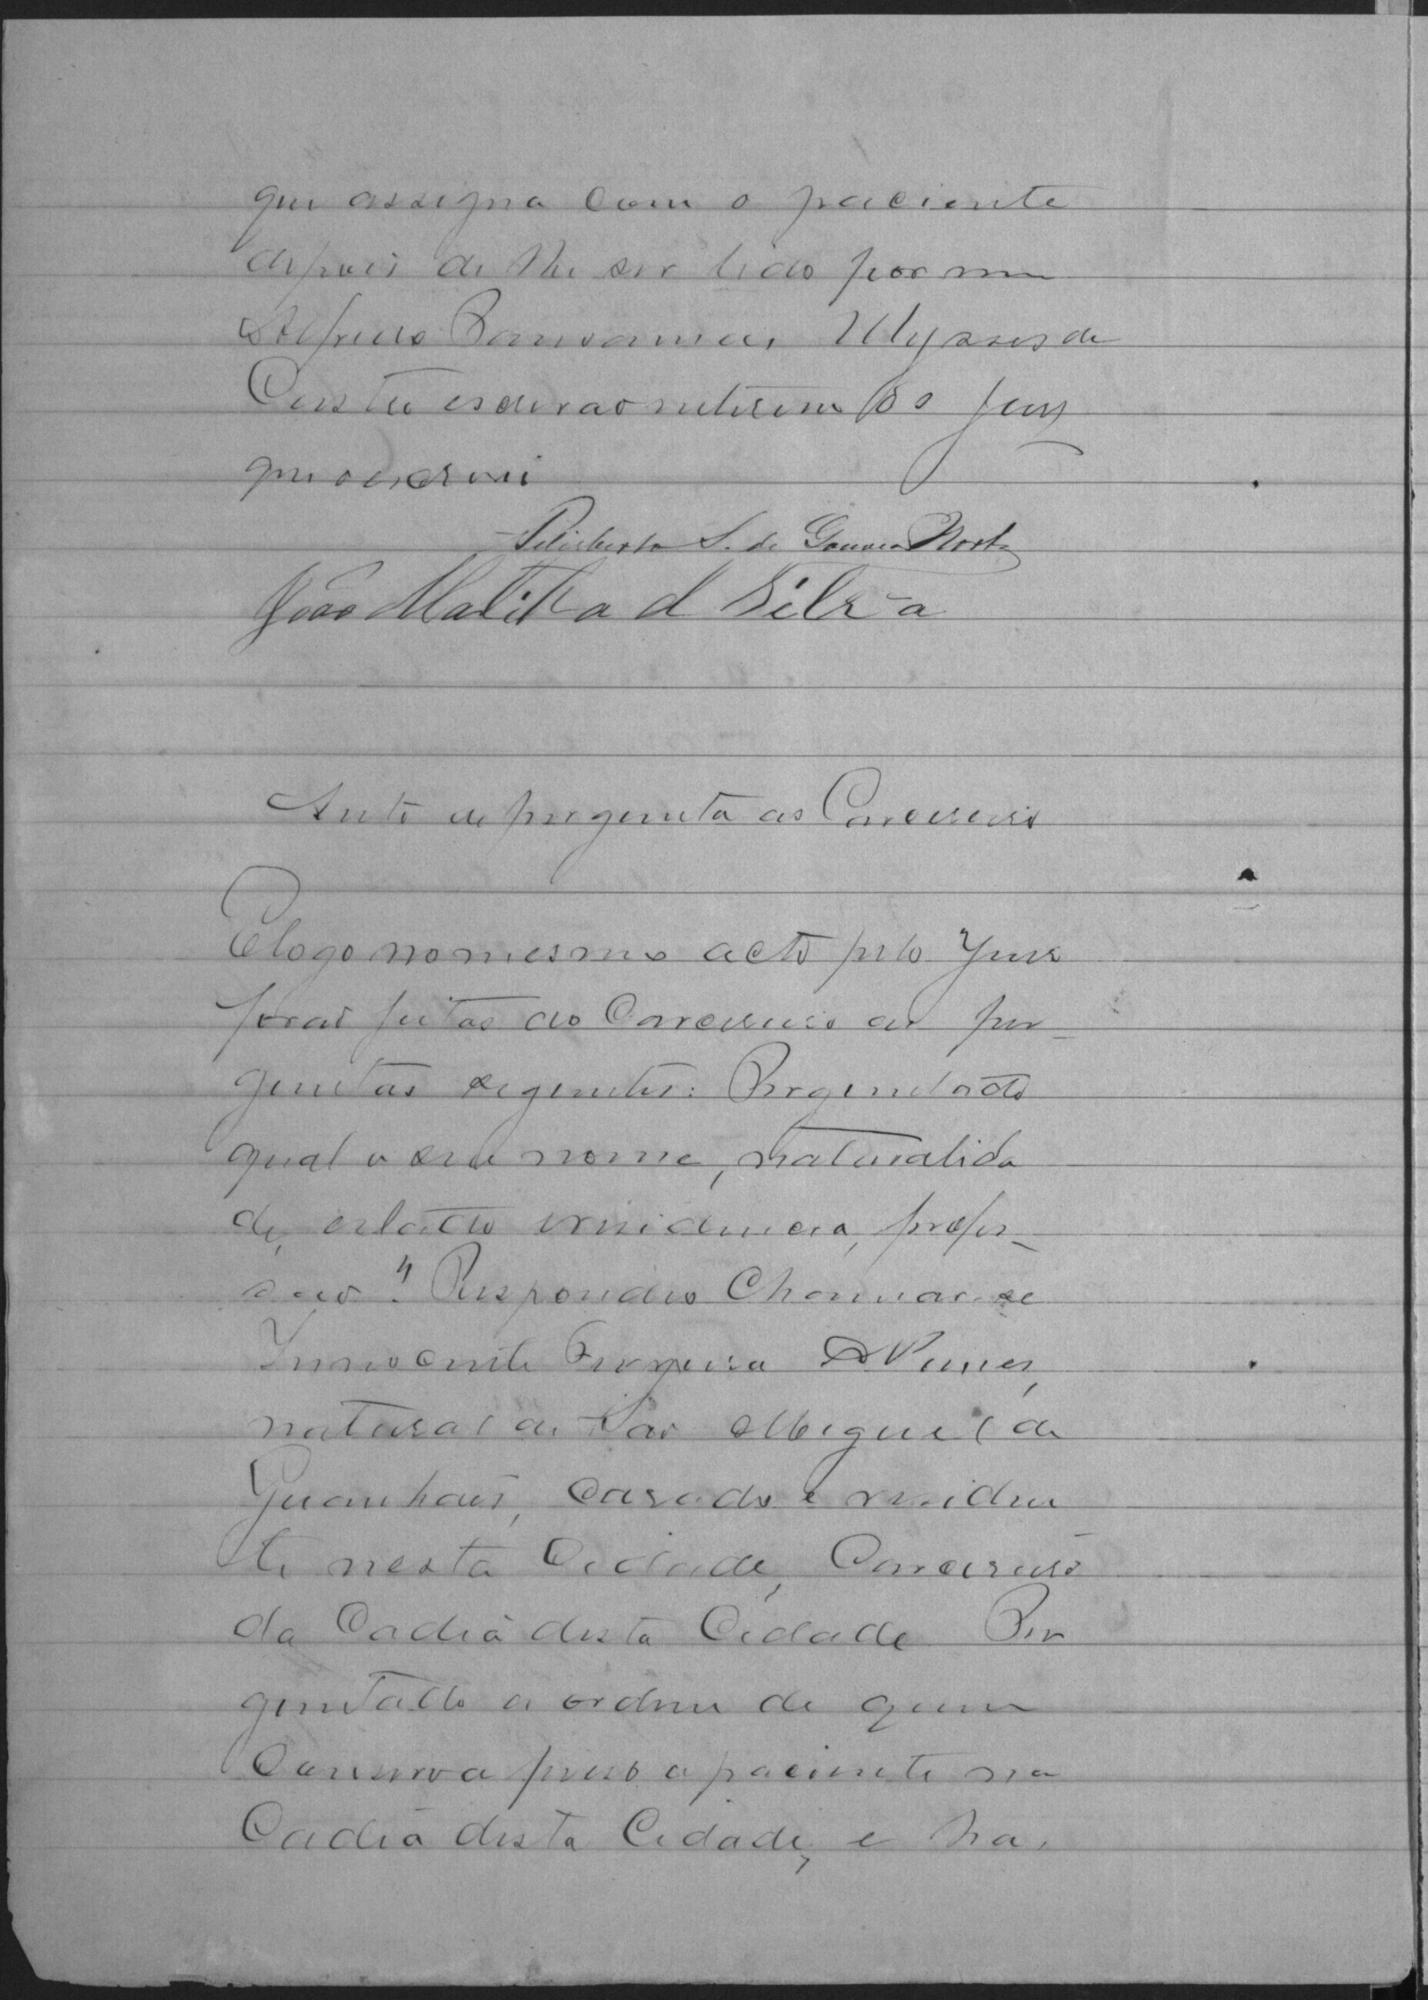 que assigna com o paciente
depois de lhe ser lido por mim
Alfredo Ulysses da
Costa escrivão interino do Jury
que o escrevi
Felisberto S. de Gouvea Horta
João Matika d Silva
Auto de pergunta ao Carcereiro
E logo no mesmo acto pelo Juiz
foras feitas ao Carcereiro as per-
guntas seguintes: Perguntado
qual o seu nome, naturalida
de, estado residencia, profis-
são? Respondeo Chamar-se
Innocente Nunes,
natural de São Miguel de
Guanhães, Casado e residen
te nesta Cidade, Carcereiro
da Cadeia desta Cidade Per
guntado a ordem de quem
Conserva preso o paciente na
Cadeia desta Cidade, e ha